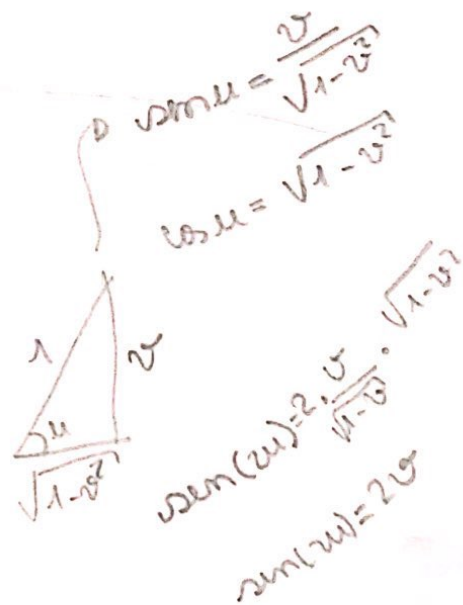 sen u = v/√(1-v²)
cos u = √(1-v²)
1
v
u
√(1-v²)
sen(2u)=2·v/√(1-v)·√(1-v²)
sen(2u)=2v